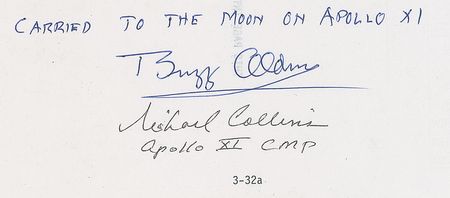 CARRIED TO THE MOON ON APOLLO XI
Buzz Aldrin
Michael Collins
Apollo XI CMP
3-32a